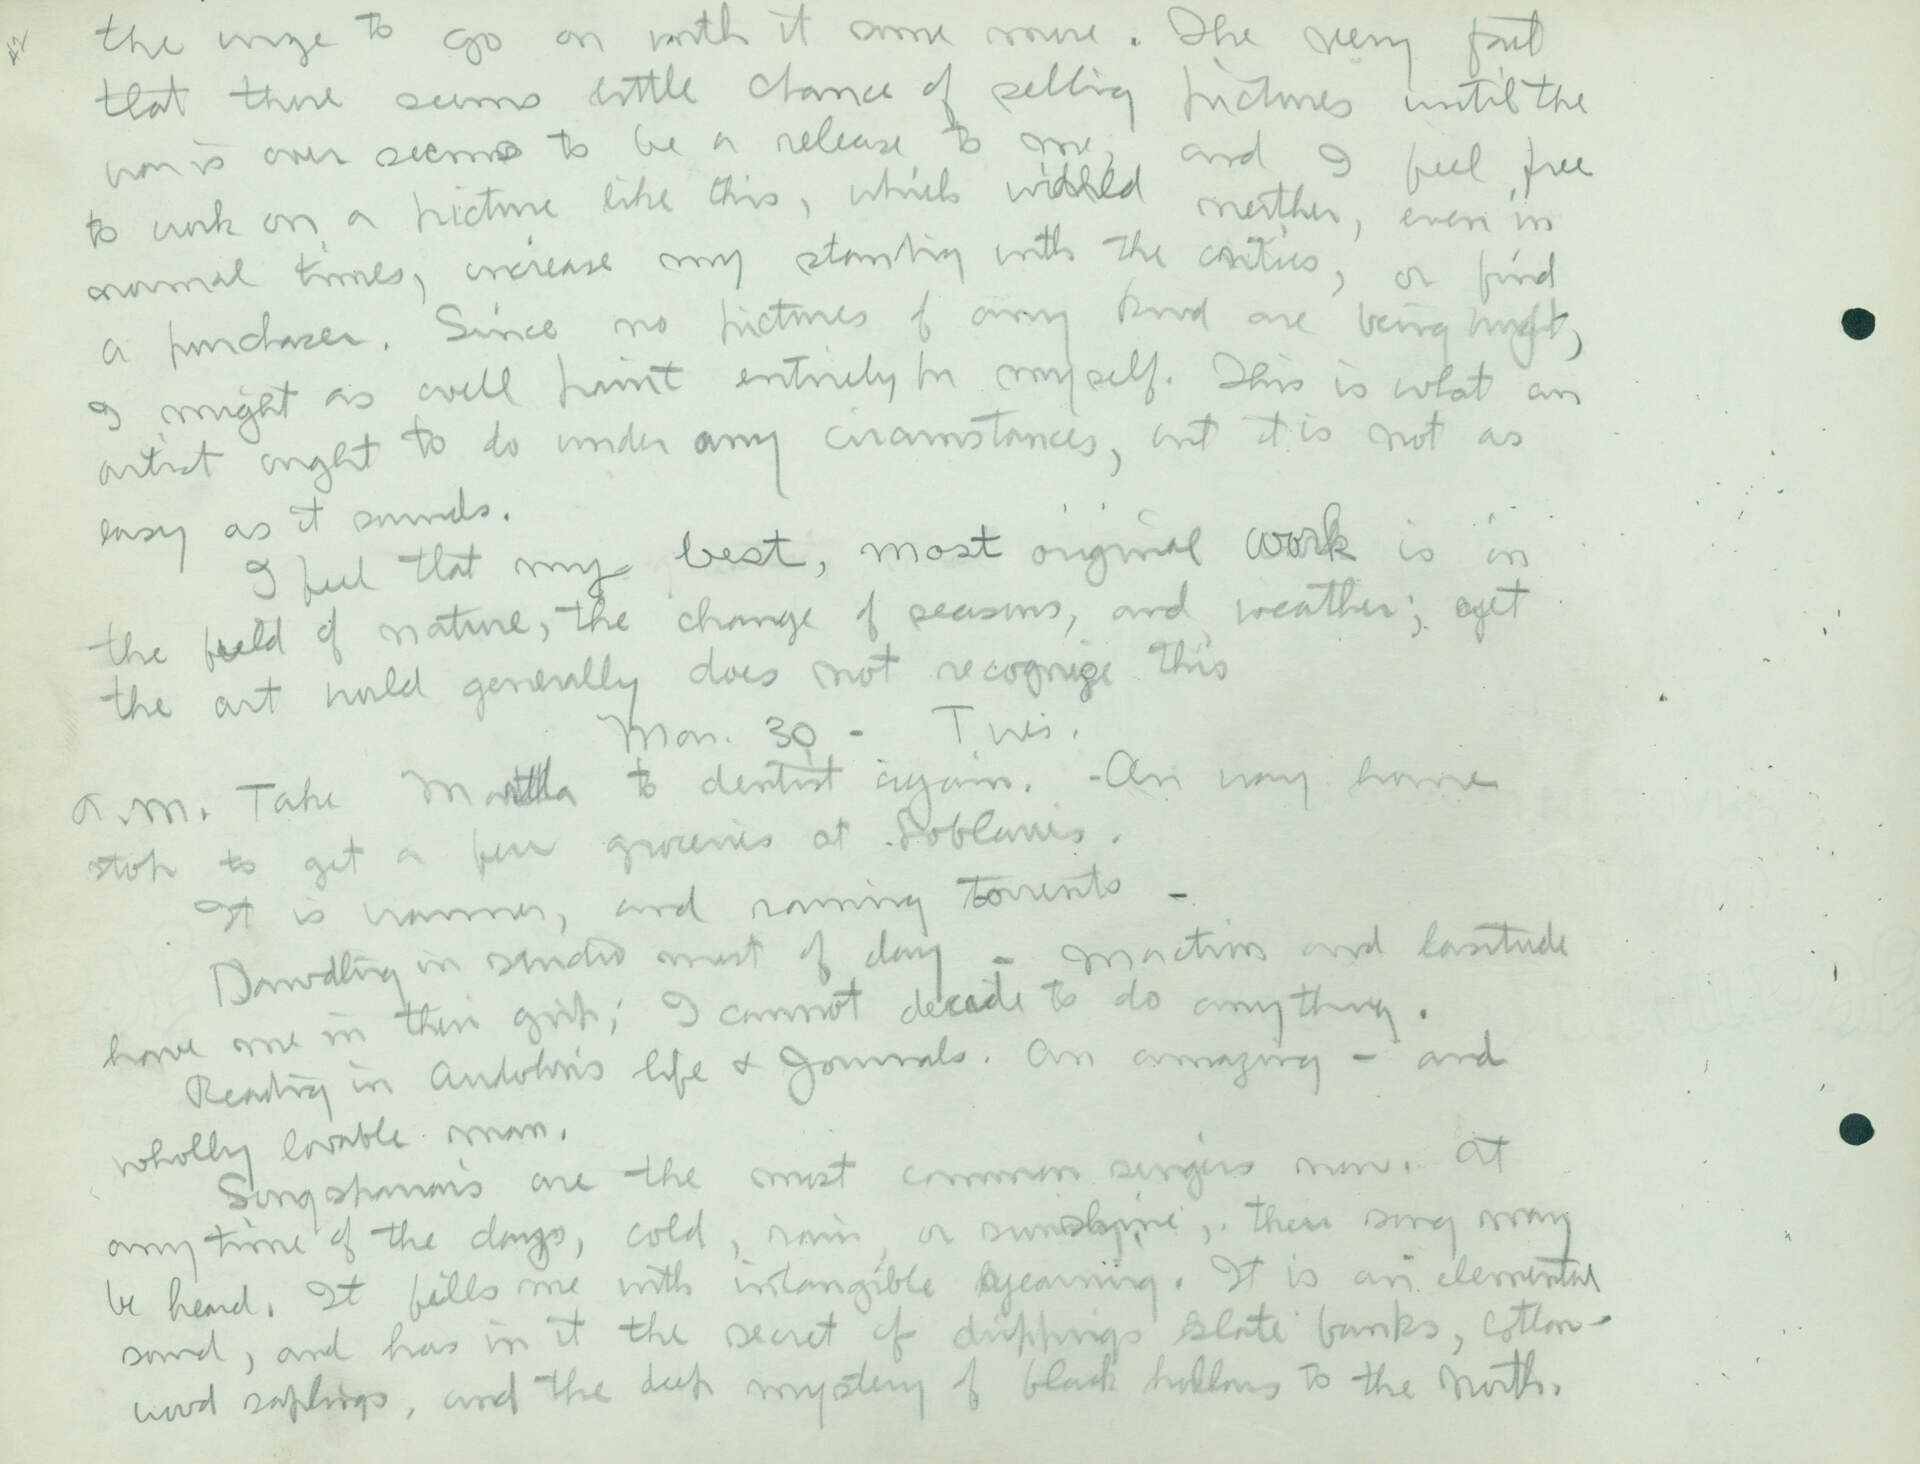 42
the urge to go on with it some more. The very fact
that there seems little chance of selling pictures until the
war is over seems to be a release to me, and I feel free
to work on a picture like this, which would neither, even in
normal times, increase my standing with the critics, or find
a purchaser. Since no pictures of any kind are being bought,
I might as well paint entirely for myself. This is what an
artist ought to do under any circumstances, but it is not as
easy as it sounds.
I feel that my best, most original work is in
the field of nature, the change of seasons, and weather; yet
the art world generally does not recognize this
Mar. 30 - Tues.
A.M. Take Martha to dentist again. - On way home
stop to get a few groceries at Loblaws.
It is warmer, and raining torrents -
Dawdling in studio most of day - Inaction and lasitude
have me in their grip; I cannot decide to do anything.
Reading in Audobon's life & Journals. An amazing - and
wholly lovable man.
Songsparrows are the most common singers now. At
any time of the days, cold, rain, or sunshine, their song may
be heard. It fills me with intangible yearning. It is an elemental
sound, and has in it the secret of drippings slate banks, cotton-
wood saplings, and the deep mystery of black hollows to the North.